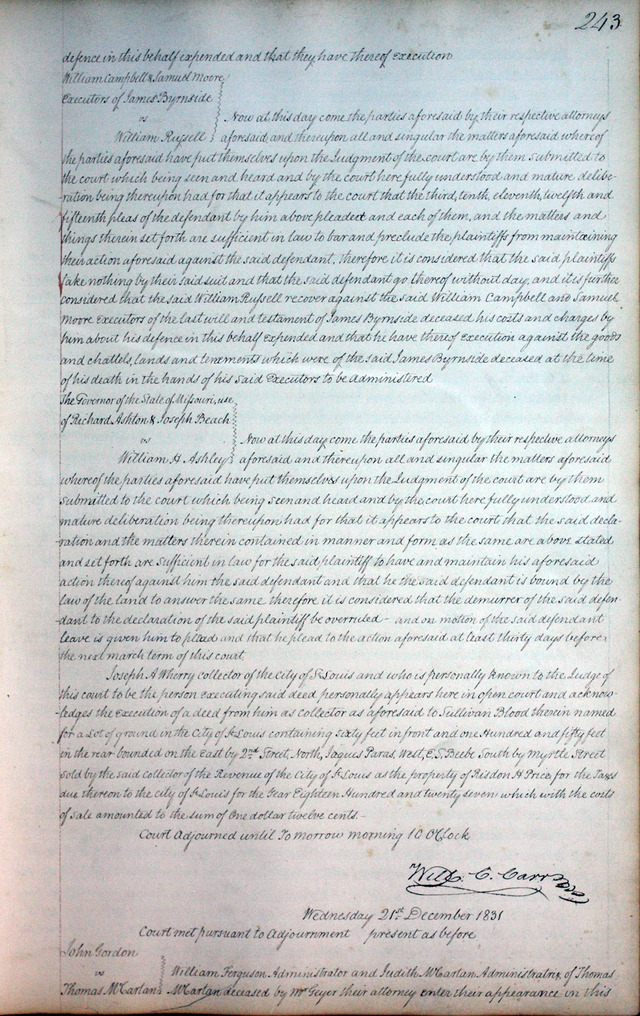 243
defence in this behalf expended and that they have thereof execution
William Campbell & Samuel Moore
Executors of James Byrnside
vs Now at this day come the parties aforesaid by their respective attorneys
William Russell aforesaid, and thereupon all and singular the matters aforesaid whereof
the parties aforesaid have put themselves upon the Judgment of the court are by them submitted to
the court which being seen and heard and by the court here fully understood and mature delibe-
-ration being thereupon had for that it appears to the court that the third, tenth, eleventh, twelfth and
fifteenth pleas of the defendant by him above pleaded and each of them, and the matters and
things therein set forth are sufficient in law to bar and preclude the plaintiffs from maintaining
their action aforesaid against the said defendant, therefore it is considered that the said plaintiffs
take nothing by their said suit and that the said defendant go thereof without day, and it is further
considered that the said William Russell recover against the said William Campbell and Samuel
Moore Executors of the last will and testament of James Byrnside deceased his costs and charges by
him about his defence in this behalf expended and that he have thereof execution against the goods
and chattels, lands and tenements which were of the said James Byrnside deceased at the time
of his death in the hands of his said Executors to be administered
The Governor of the State of Missouri, use
of Richard Ashton & Joseph Beach
vs Now at this day come the parties aforesaid by their respective attorneys
William H. Ashley aforesaid and thereupon all and singular the matters aforesaid
whereof the parties aforesaid have put themselves upon the Judgment of the court are by them
submitted to the court which being seen and heard and by the court here fully understood and
mature deliberation being thereupon had for that it appears to the court that the said decla-
-ration and the matters therein contained in manner and form as the same are above stated
and set forth are sufficient in law for the said plaintiff to have and maintain his aforesaid
action thereof against him the said defendant and that he the said defendant is bound by the
law of the land to answer the same therefore it is considered that the demurrer of the said defen-
-dant to the declaration of the said plaintiff be overruled - and on motion of the said defendant
leave is given him to plead and that he plead to the action aforesaid at least thirty days before
the next march term of this court
Joseph A Wherry collector of the City of St Louis and who is personally known to the Judge of
this court to be the person executing said deed personally appears here in open court and acknow-
-ledges the execution of a deed from him as collector as aforesaid to Sullivan Blood therein named
for a Lot of ground in the City of St Louis containing sixty feet in front and one Hundred and fifty feet
in the rear bounded on the East by 2nd Street, North, Jaques Paras, West, E.S. Beebe South by Myrtle Street
sold by the said Collector of the Revenue of the City of St Louis as the property of Risdon H Price for the Taxes
due thereon to the city of St Louis for the Year Eighteen Hundred and twenty seven which with the costs
of sale amounted to the sum of One dollar twelve cents. -
Court Adjourned until To morrow morning 10 OClock
Will. C. Carr
Wednesday 21st December 1831
Court met pursuant to Adjournment present as before
John Gordon
vs William Ferguson Administrator and Judith McCartan Administratrix of Thomas
Thomas McCartan McCartan deceased by Mr Geyer their attorney enter their appearance in this